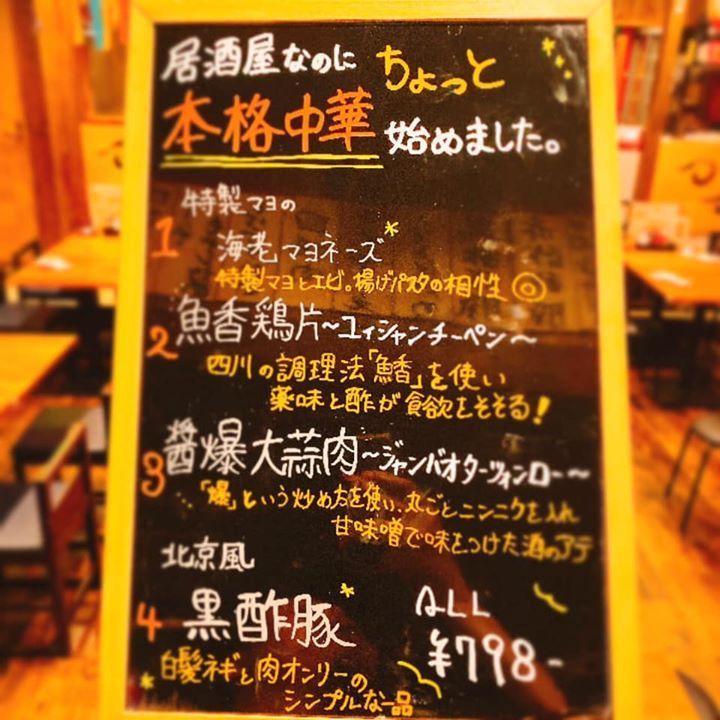 居酒屋なのに ちょっと
本格中華 始めました。
特製マヨの
1 海老マヨネーズ
特製マヨとエビ。揚げパスタの相性◎
2 魚香鶏片～ユイシャンチーペン～
四川の調理法「魚香」を使い
薬味と酢が食欲をそそる!
3 醤爆大蒜肉～ジャンバオターツァンロー～
「爆」という炒め方を使い、丸ごとニンニクを入れ
甘味噌で味をつけた酒のアテ
北京風
4 黒酢豚
ALL
¥798-
白髪ネギと肉オンリーの
シンプルな一品